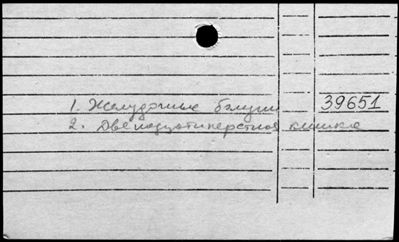 1. Желудочные блузии 39651
2. Двенадцатиперстная кишка